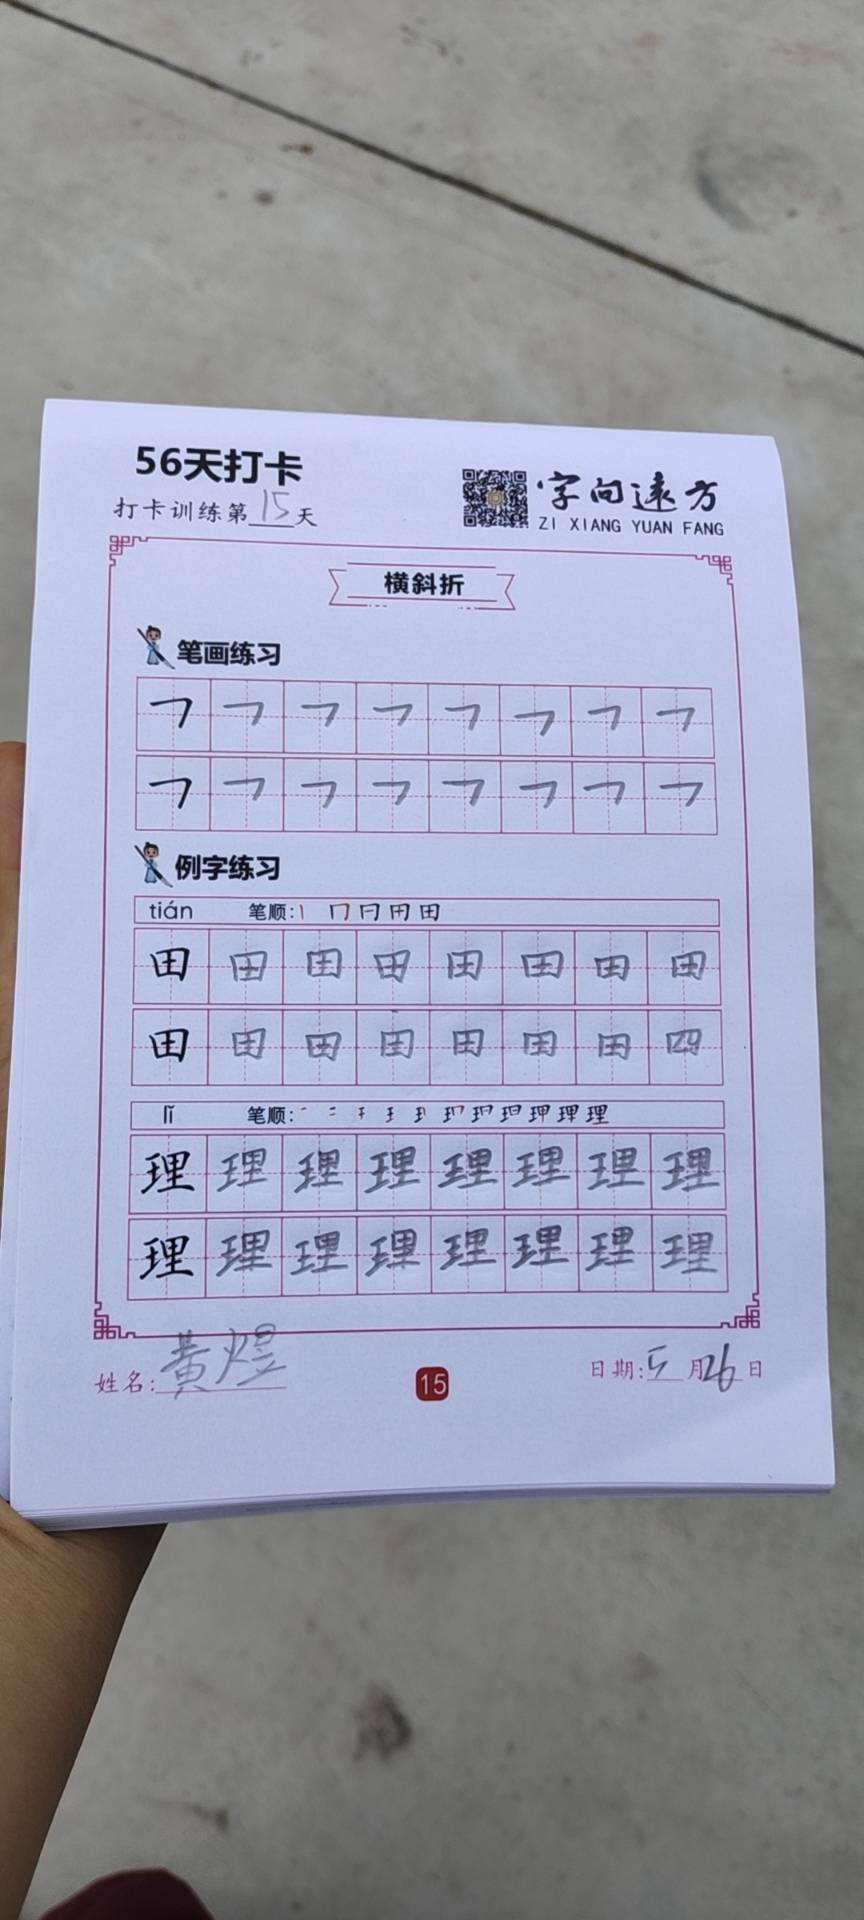 56天打卡
打卡训练第15天
字向远方
ZI XIANG YUAN FANG
横斜折
笔画练习
㇕ ㇕ ㇕ ㇕ ㇕ ㇕ ㇕ ㇕
㇕ ㇕ ㇕ ㇕ ㇕ ㇕ ㇕ ㇕
例字练习
tián 笔顺: 丨 冂 日 田 田
田 田 田 田 田 田 田 田
田 田 田 田 田 田 田 四
lǐ 笔顺:
理 理 理 理 理 理 理 理
理 理 理 理 理 理 理 理
姓名: 黄煜
15
日期: 5月26日